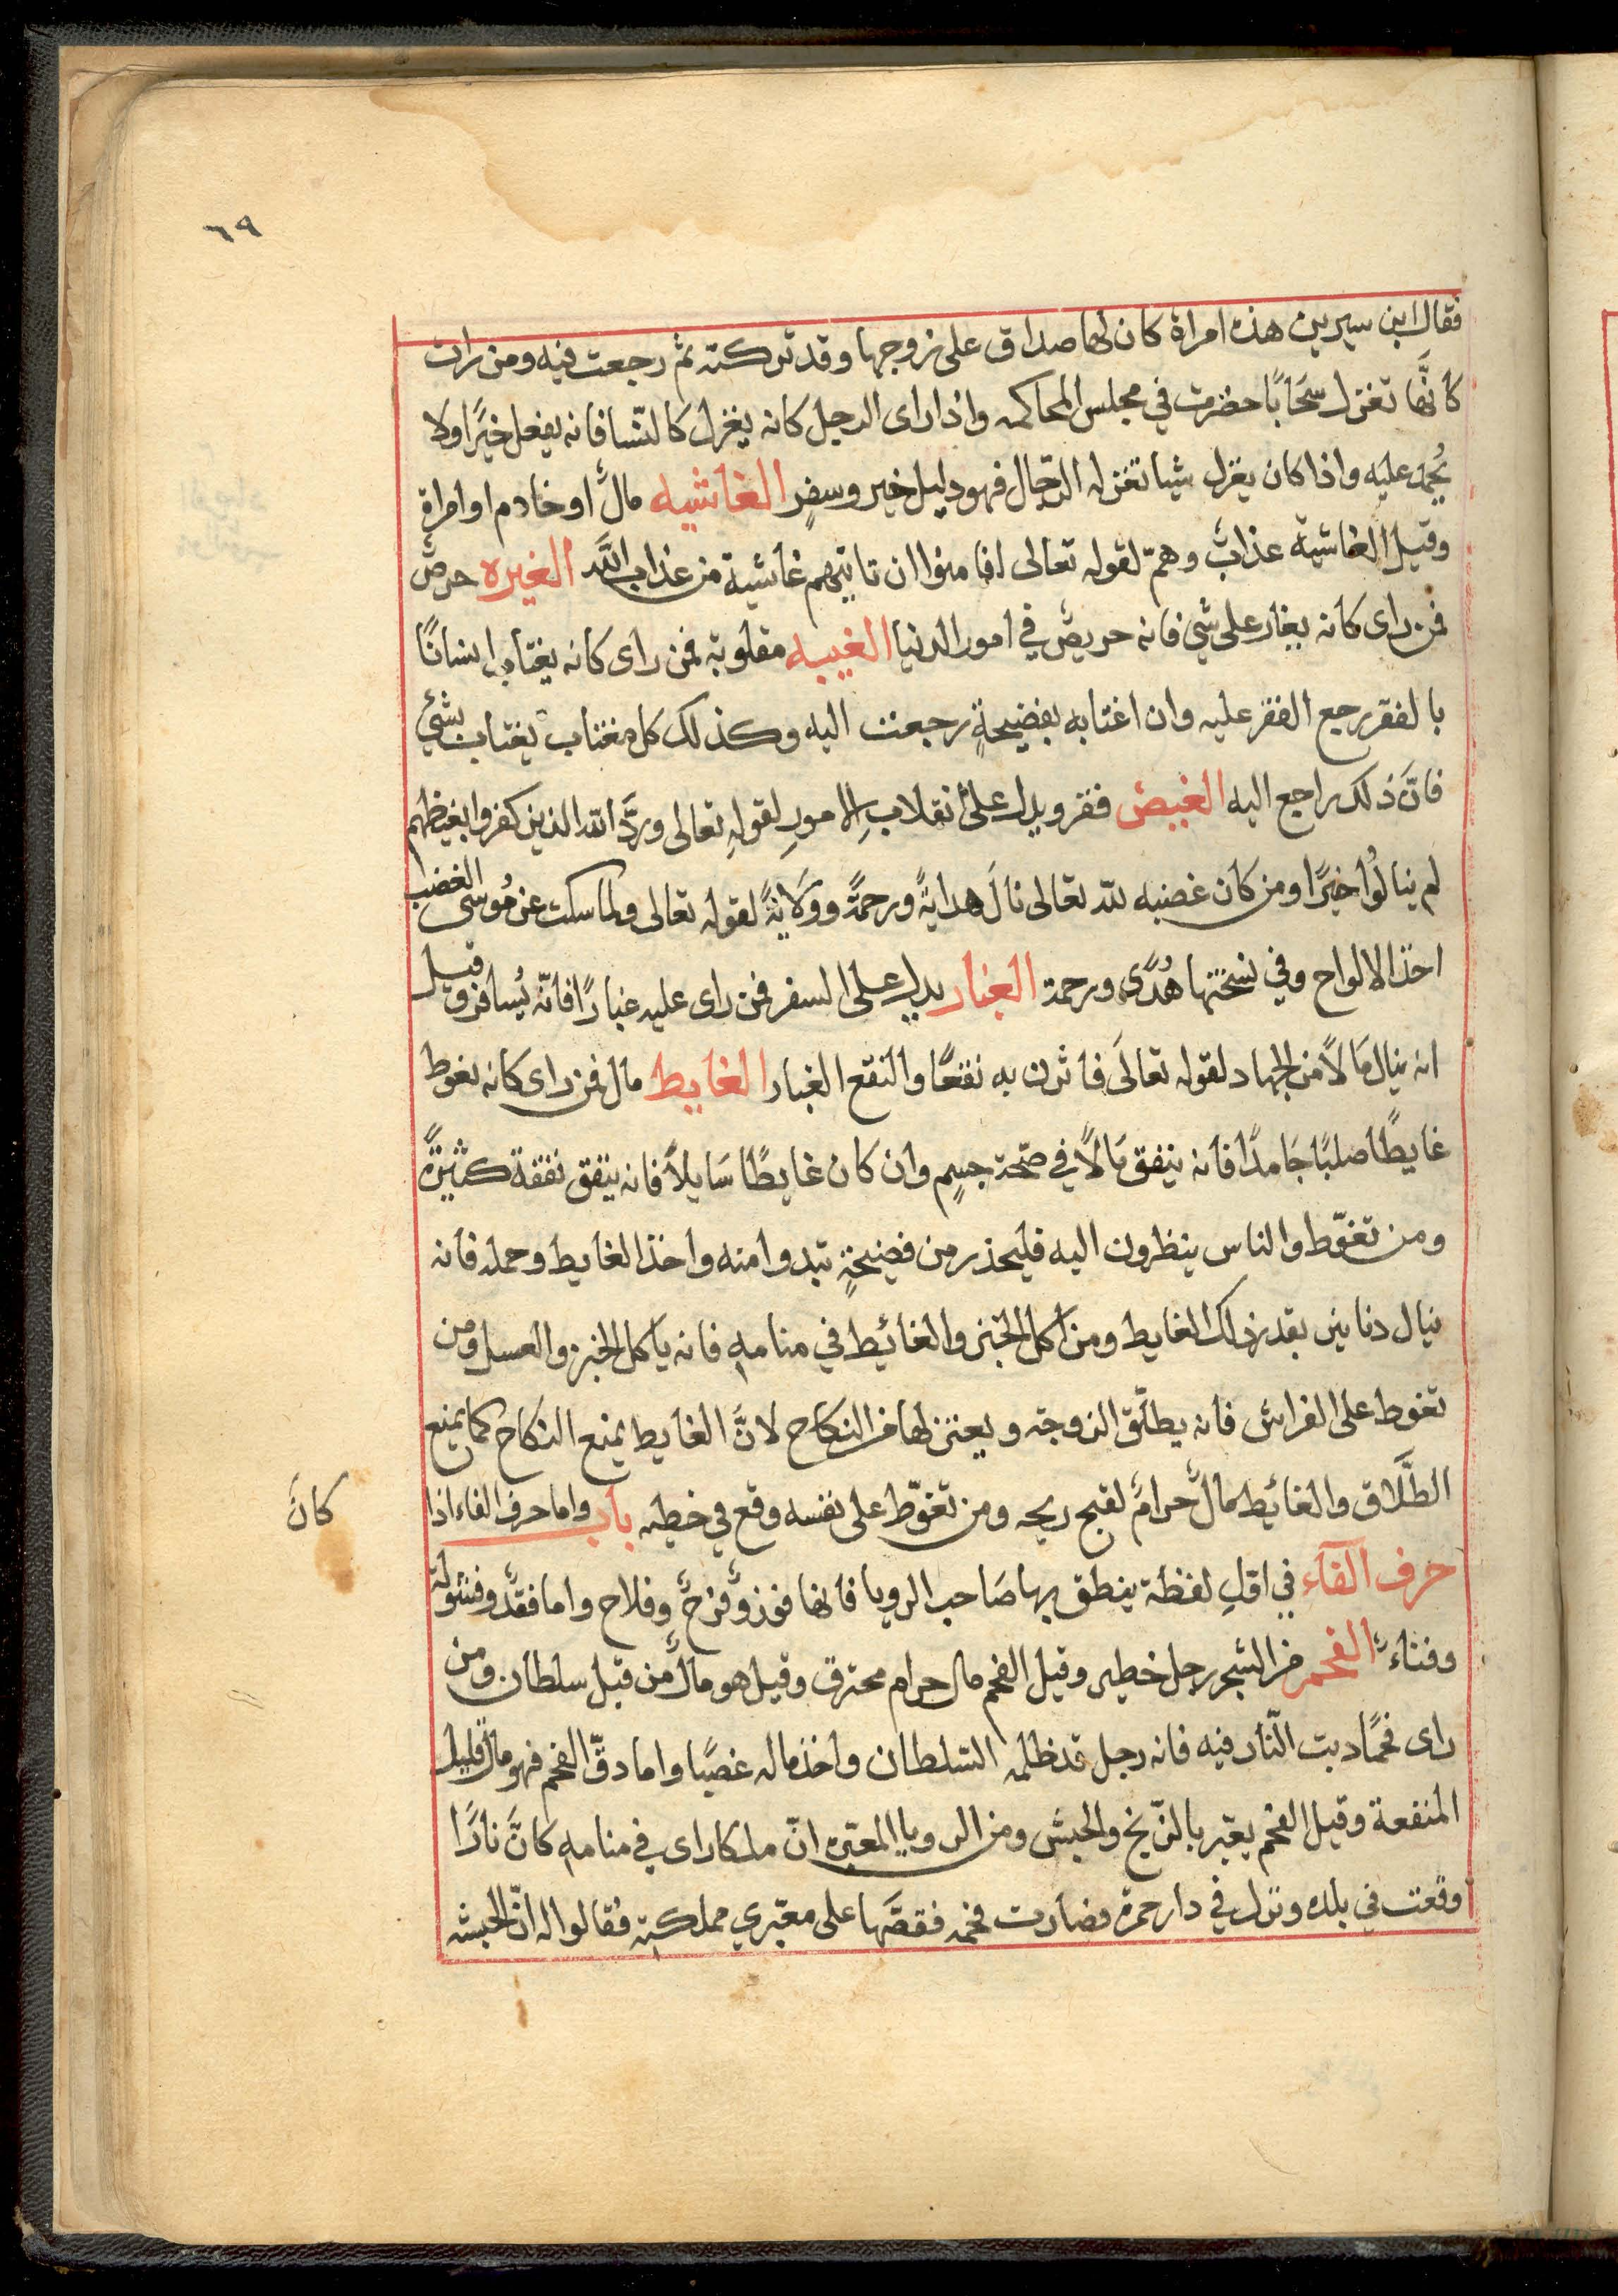 ٦٩
فقال ابن سيرين هذه امراة كان لها صداق على زوجها وقد تركته ثم رجعت فيه ومن رات
كانَّها تغزل سحَابًا حضرت في مجلس المحاكمه واذا راى الرجل كانه يغزل كالنّسا فانه يفعل خيرًا ولا
يُحمد عليه واذا كان يغزل شيا تغزله الرّجال فهو دليل خير وسفرٍ الغاشيه مالٌ او خادم او امراة
وقيل الغاشية عذابٌ وهمّ لقوله تعالى افامنوا ان تاتيهم غاشية من عذاب اللّه الغيره حرصٌ
فمن راى كانه يغار على شي فانه حريصٌ في امور الدنيا الغيبه مقلوبة فمن راى كانه يغتاب انسانًا
بالفقر رجع الفقر عليه وان اغتابه بفضيحةٍ رجعت اليه وكذلك كل مغتاب يغتاب بشئ
فانَّ ذلك راجع اليه الغيض فقر ويدل على انقلابِ الامورِ لقولهِ تعالى وردَّ الله الذين كفروا بغيظهم
لم ينالُوا خيرًا ومن كان غضبه لله تعالى نالَ هدايةً ورحمةً وولَايةً لقوله تعالى ولما سكت عن مُوسى الغضب
اخذ الالواح وفي نسختها هُدًى ورحمة الغبار يدل على السفر فمن راى عليه غبارًا فانّه يُسافر وقيل
انه ينال مَالًا من الجهاد لقوله تعالَى فاثرن به نقعًا والنقع الغبار الغايط مال فمن راى كانه تغوط
غايطًا صلبًا جَامدًا فانه ينفق مَالًا في صحّة جسمٍ وان كان غايطًا سَايلاً فانه ينفق نفقة كثيرةً
ومن تغوّط والناس ينظرون اليه فليحذر من فضيحةٍ تبدوا منه واخذ الغايط وحمله فانه
ينال دنانير بقدر ذلك الغايط ومن اكل الخبز والغائيط في منامهِ فانه ياكل الخبز والعسل ومن
تغوط على الفراش فانه يطلّق الزوجته ويعتزلها من النكاح لانَّ الغايط يمنع النكاح كما يمنع
الطَّلَاق والغائيط مالٌ حرامٌ لقبح ريحه ومن تغوّط على نفسه وقع في خطيه باب واما حرف الفاء اذا
كانَ
حرف الفآء في اوّلِ لفظة ينطق بها صَاحب الرويا فانها فوزٌ وفرحٌ وفلاح واما فقدٌ وفشولة
وفناءٌ الفحم من الشجر رجل خطير وقيل الفحم مال حرام محترق وقيل هو مالٌ من قبل سلطان ومن
راى فحمًا دبت النّار فيه فانه رجل قد ظلمه السّلطان واخذ ماله غصبًا واما دقّ الفحم فهو مالٌ قليل
المنفعة وقيل الفحم يعبّر بالزّنج والحبش ومن الرويا المعبّره انّ ملكا راى في منامهِ كانَّ نارًا
وقعت في بلده وتزل في دار حمرة فصارت فحمه فقصّها على معبّري مملكته فقالوا له انّ الحبشه